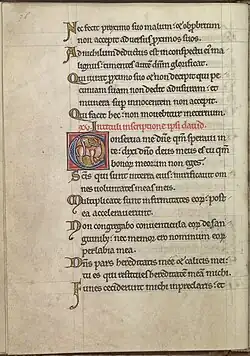 Nec fecit proximo suo malum: et obprobrium
non accepit adversus proximos suos.
Ad nichilum deductus est in conspectu ei' ma
lignus: timentes autem dnm glorificat.
Qui iurat proximo suo et non decipit: qui pe
cuniam suam non dedit ad usuram: et
munera sup innocentem non accepit.
Qui facit hec: non movebitur in eternum.
xv. In tituli inscriptione ipsi david.
Conserva me dne qm speravi in
te: dixi dno deus meus es tu qm
bonor meorum non eges.
Scis qui sunt in terra eius: mirificavit om
nes voluntates meas in eis.
Multiplicate sunt infirmitates eor: post
ea acceleraverunt.
Non congregabo conventicula eor de san
guinib: nec memor ero nominum eor
per labia mea.
Dns pars hereditatis mee et calicis mei:
tu es qui restitues hereditatem meam michi.
Funes ceciderunt michi in preclaris: et